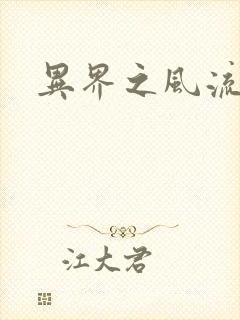 異界之風流
江大君